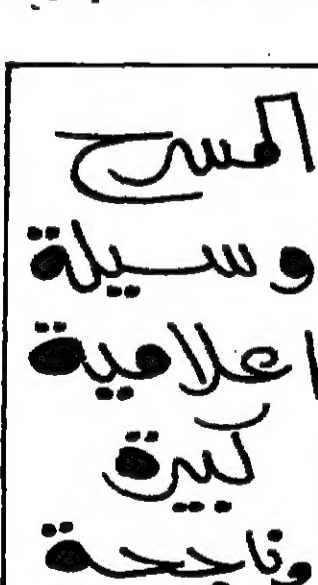 المسرح
وسيلة
اعلامية
كبيرة
وناجحة